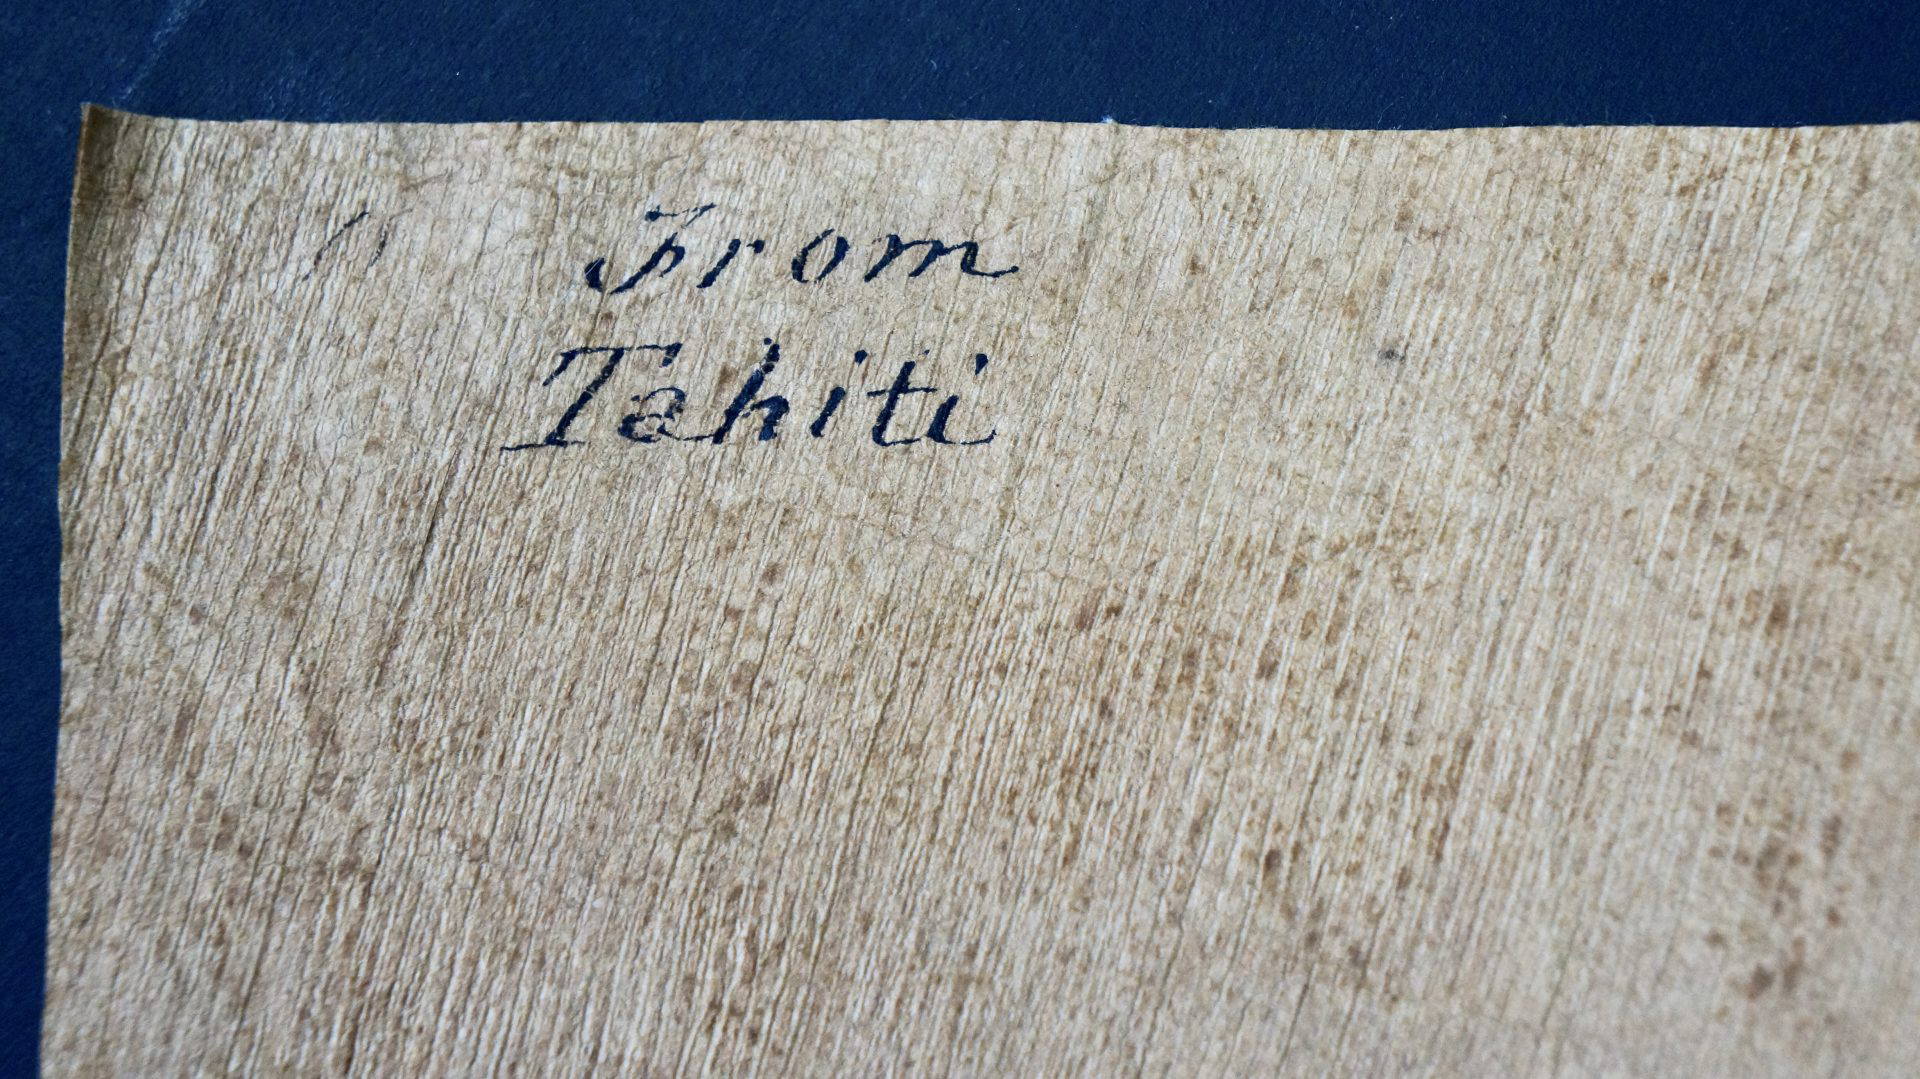 From
Tahiti